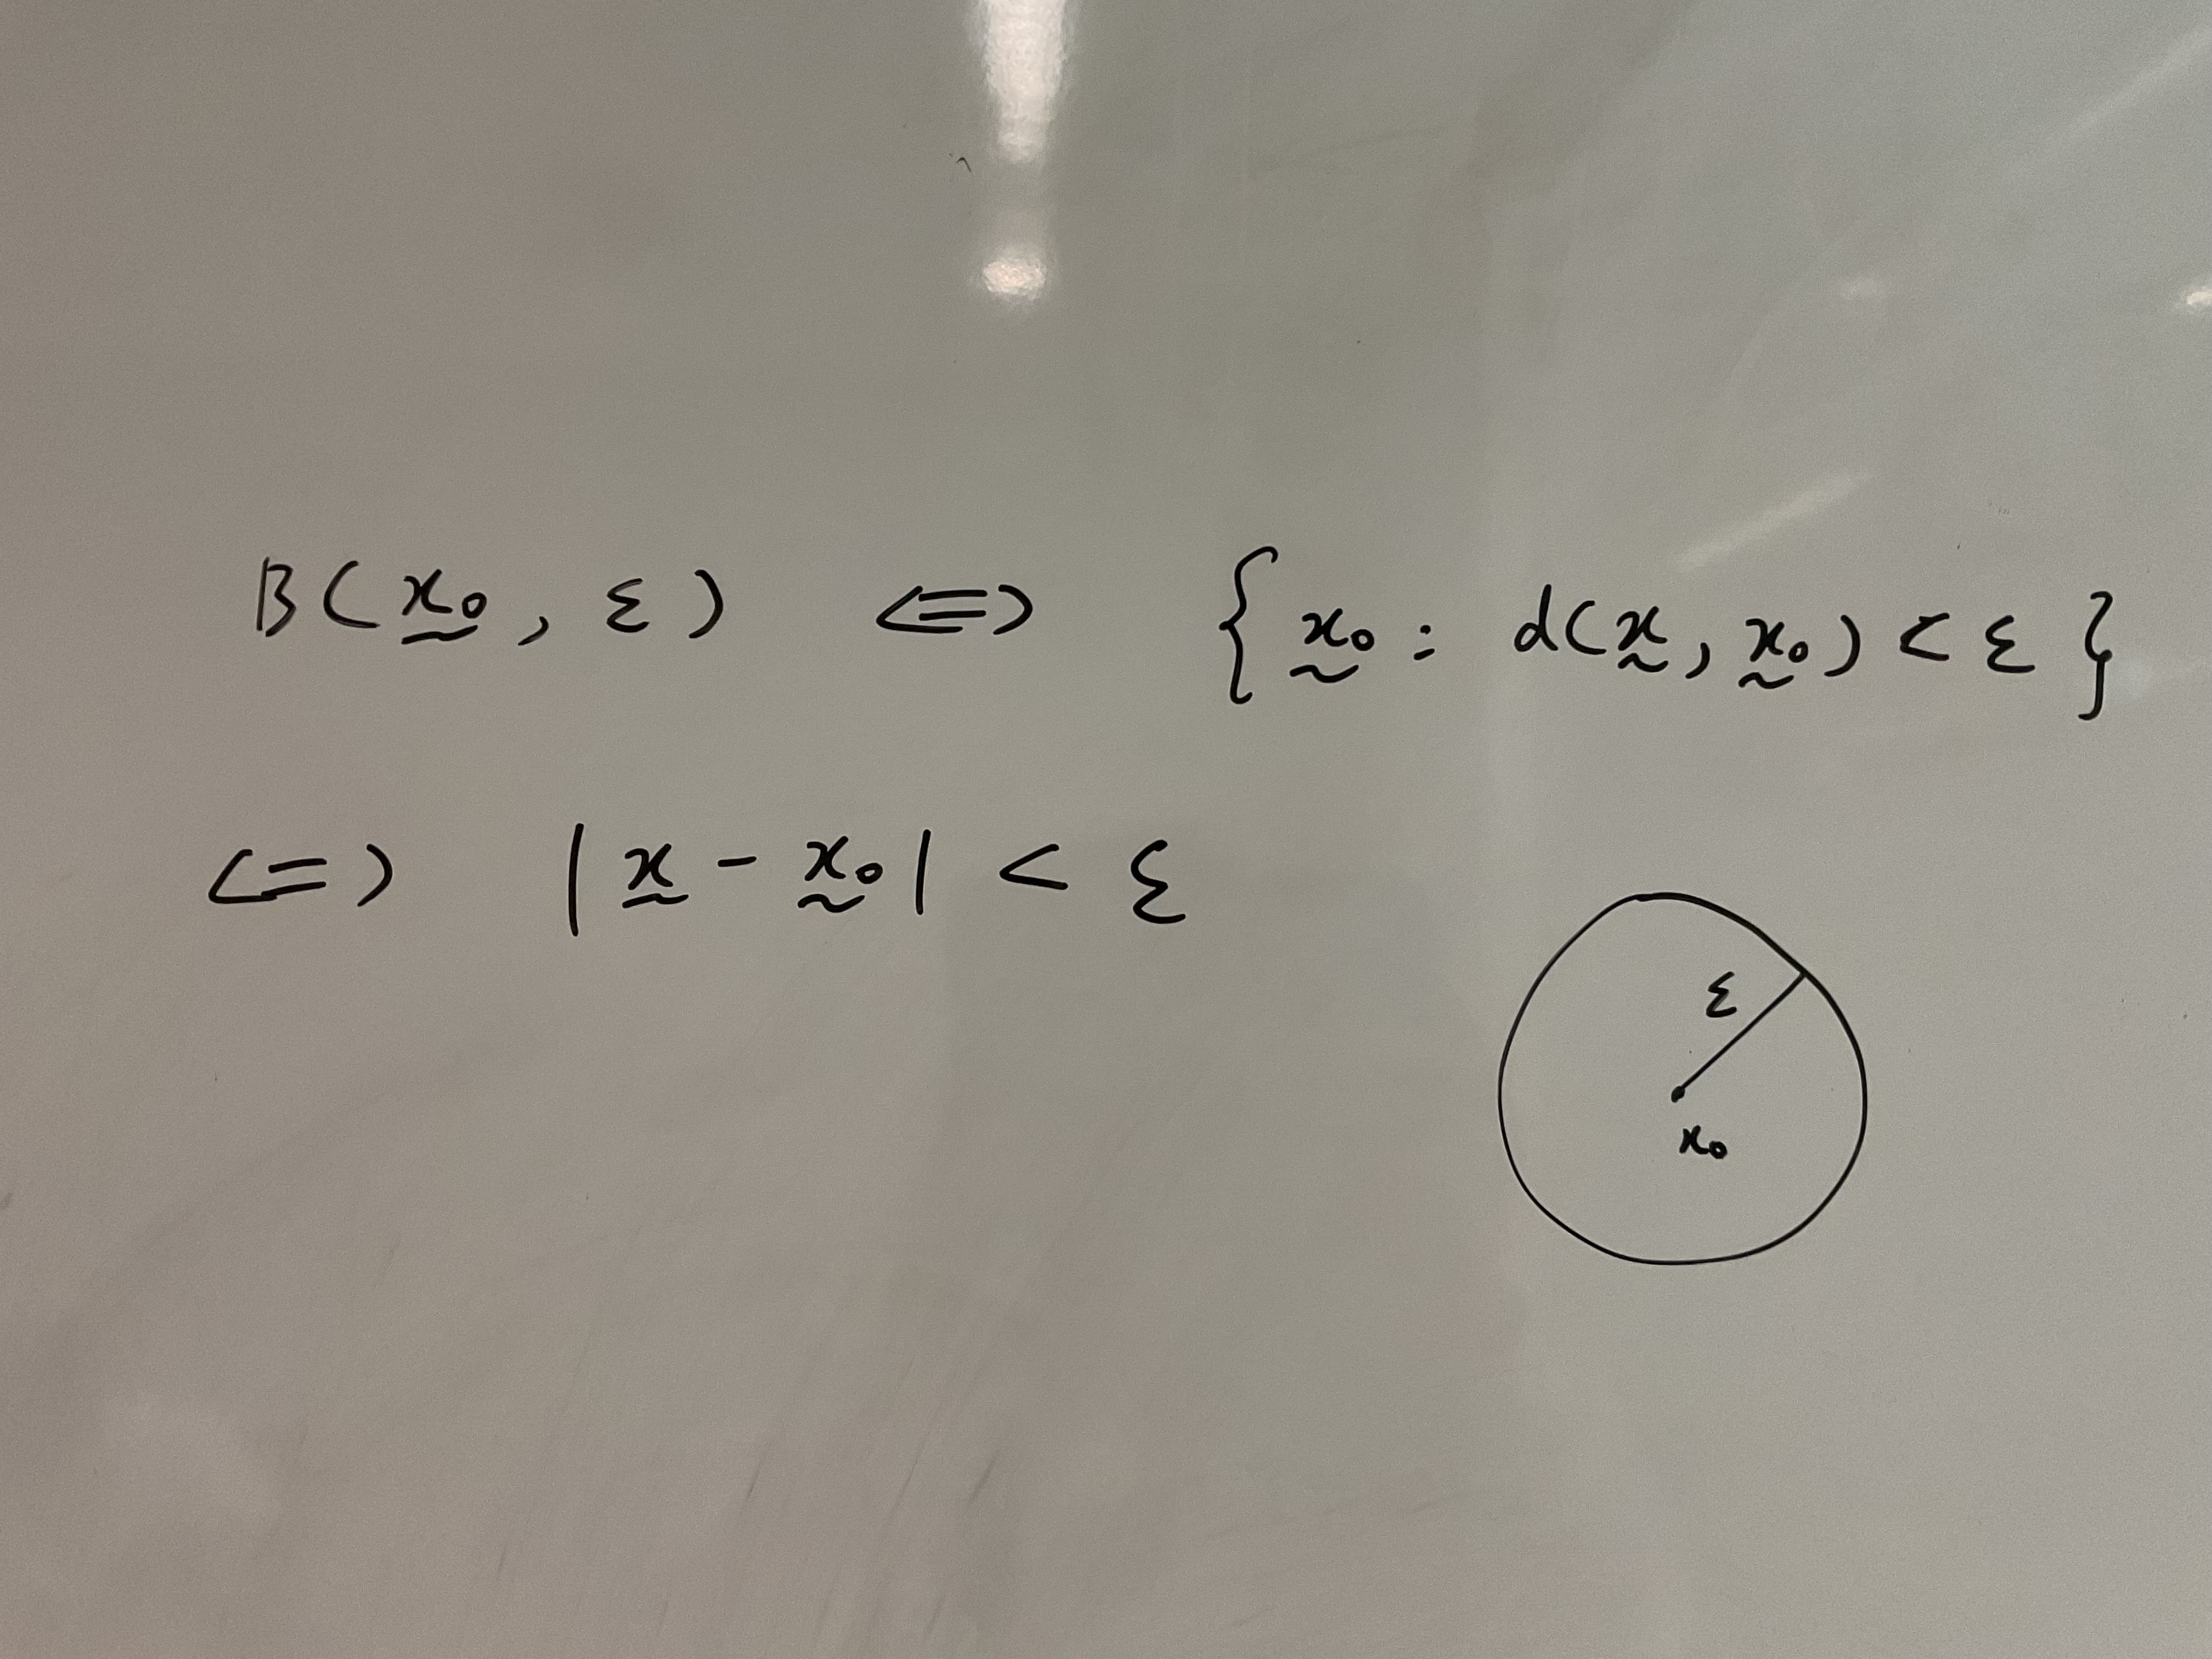 B(x̰₀, ε) <=> {x̰₀ : d(x̰, x̰₀) < ε}
<=> |x̰ - x̰₀| < ε
ε
x₀